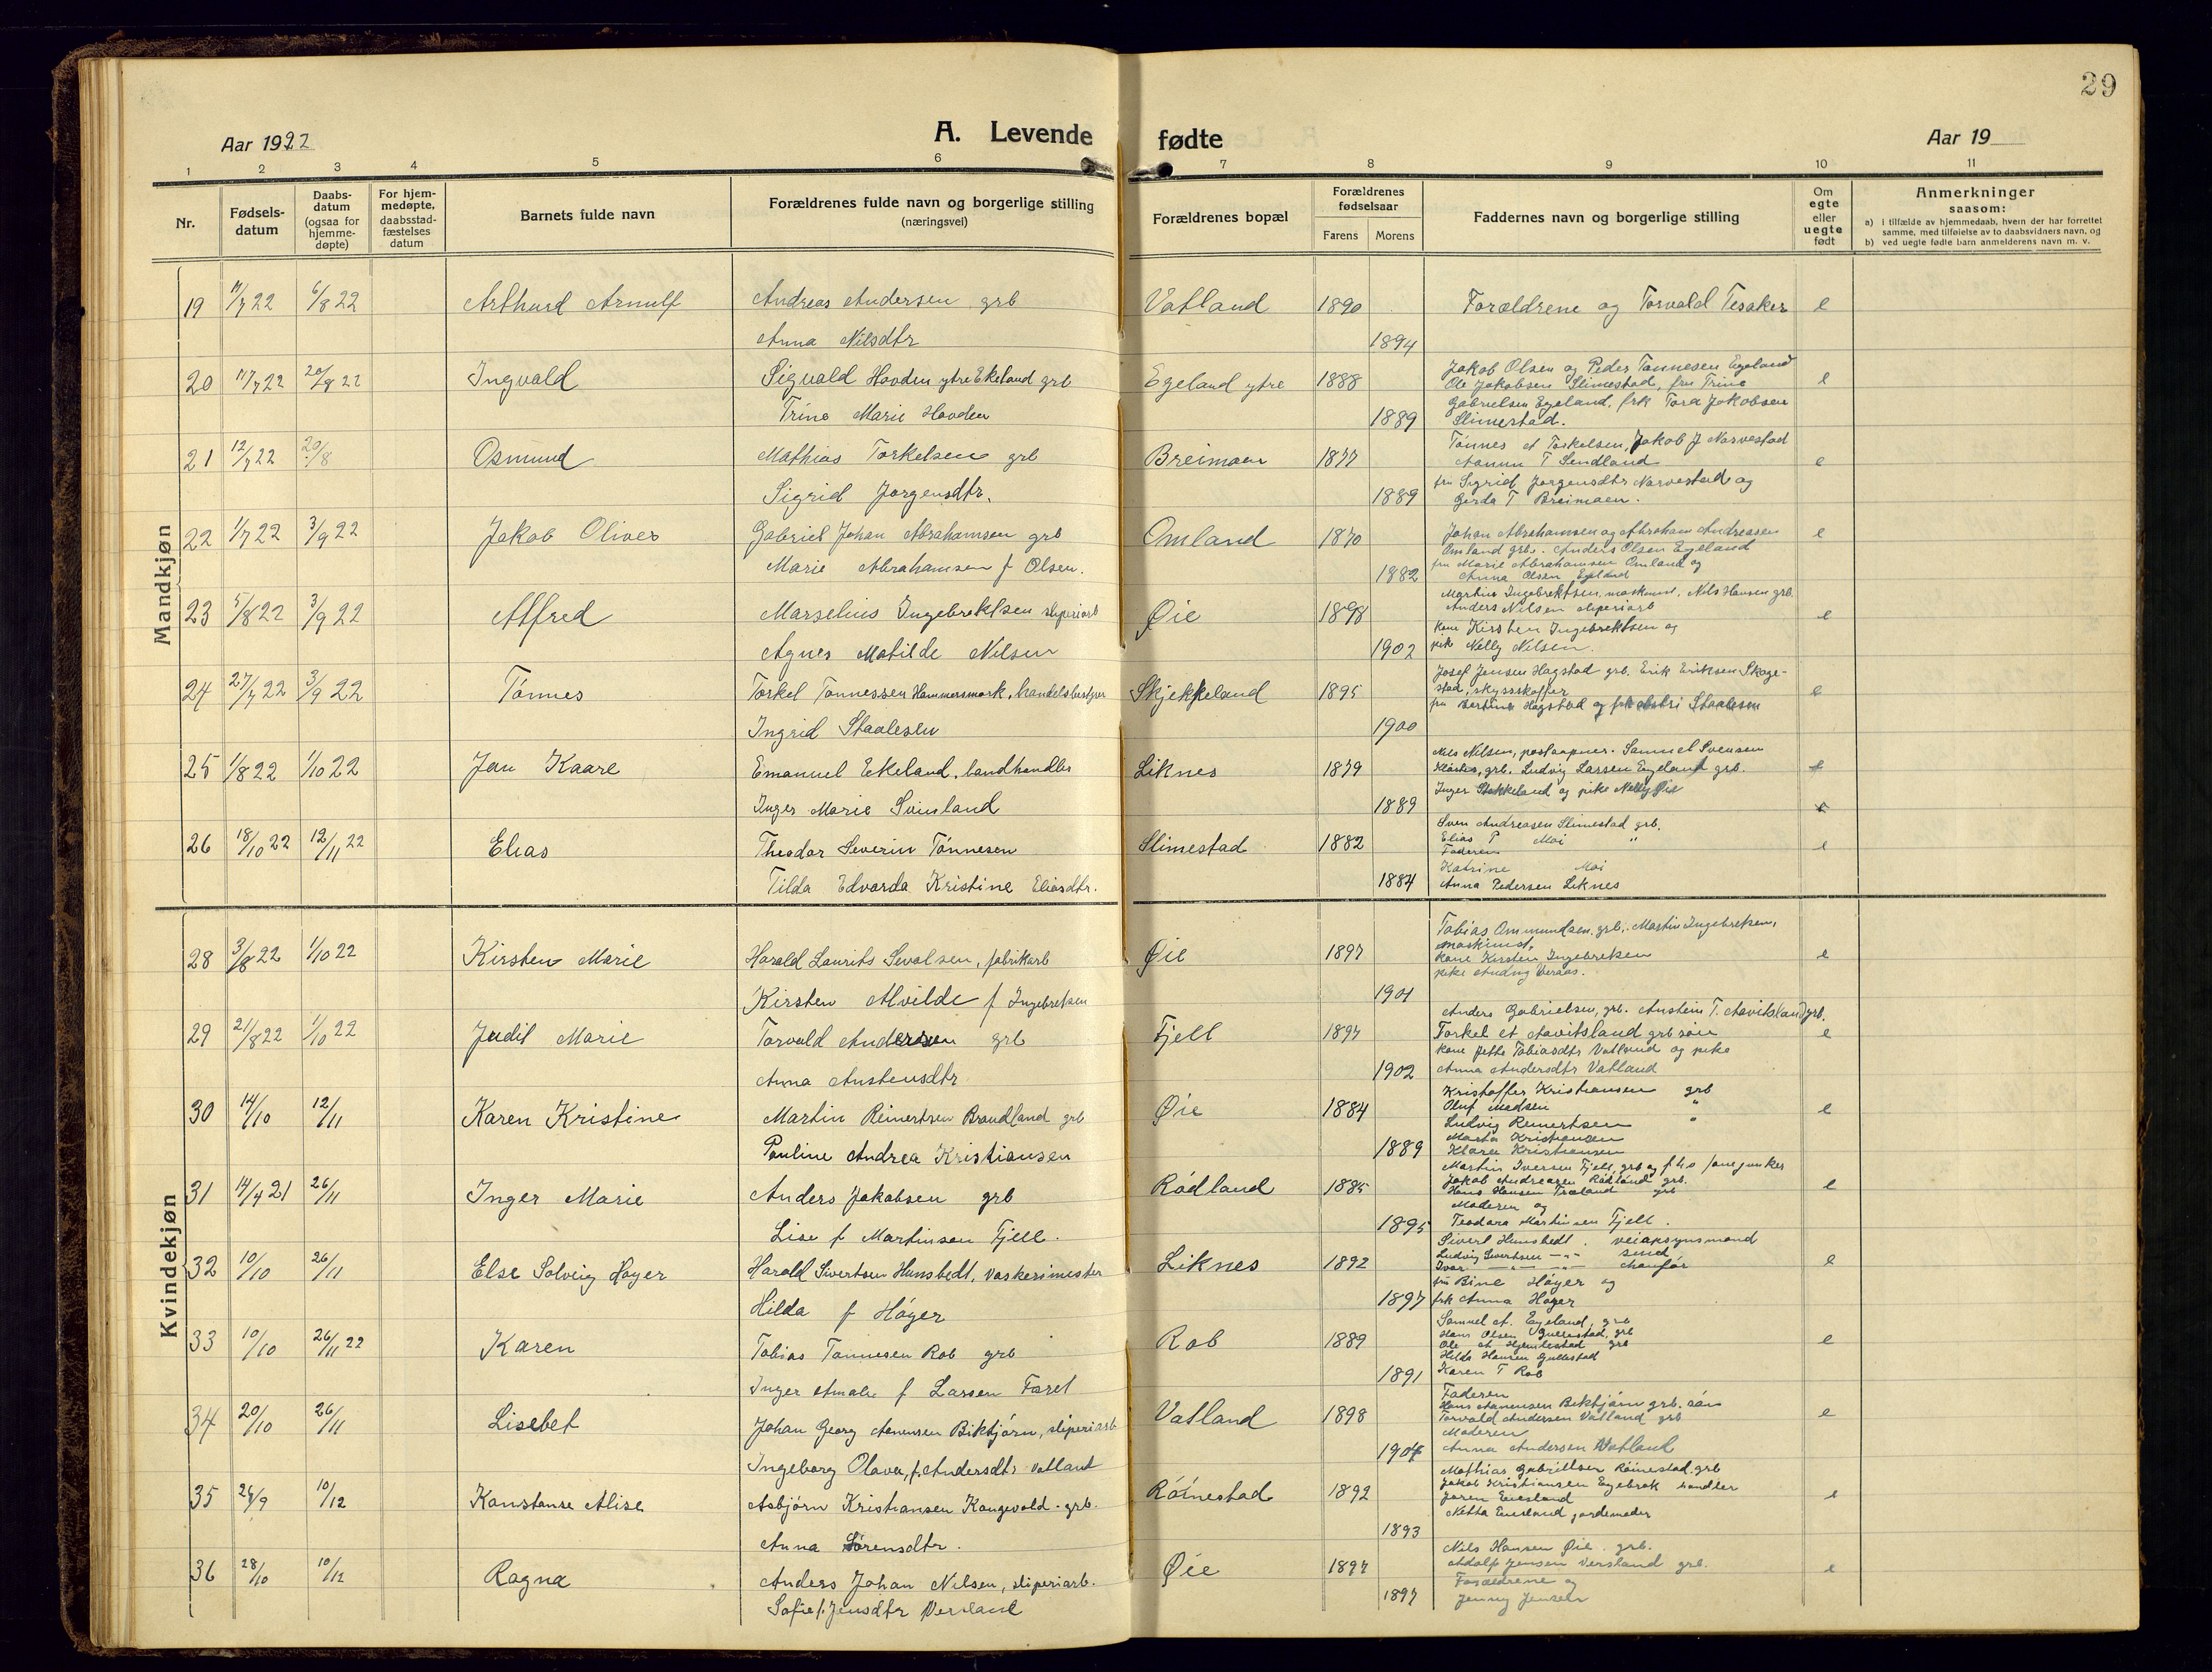 29
Aar 1922
A. Levende fødte
Aar 19
1 2 3 4 5 6 7 8 9 10 11
Nr.
Fødsels-
datum
Daabs-
datum
(ogsaa for
hjemme-
døpte)
For hjem-
medøpte,
daabsstad-
fæstelses
datum
Barnets fulde navn
Forældrenes fulde navn og borgerlige stilling
(næringsvei)
Forældrenes bopæl
Forældrenes
fødselsaar
Farens Morens
Faddernes navn og borgerlige stilling
Om
egte
eller
uegte
født
Anmerkninger
saasom:
a) i tilfælde av hjemmedaab, hvem der har forrettet
samme, med tilføielse av to daabsvidners navn, og
b) ved uegte fødte barn anmelderens navn m. v.
Mandkjøn
19 11/7 22 6/8 22 Arthurd Arnulf Andreas Andersen grb Vatland 1890 Forældrene og Torvald Tesaker e
Anna Nilsdtr 1894
20 17/7 22 20/8 22 Ingvald Sigvald Hovden ytre Ekeland grb Egeland ytre 1888 e
Jakob Olsen og Peder Tønnesen Egeland
Ole Jakobsen Slimestad, fru Trine
Trine Marie Hovden 1889
Gabrielsen Egeland, frk Tora Jakobsen
Slimestad.
21 12/7 22 20/8 Osmund Mathias Torkelsen grb Breimoen 1877 e
Tønnes A Torkelsen, Jakob J Narvestad
Aanen T Sendland
Sigrid Jørgensdtr. 1889
fru Sigrid Jørgensdtr Narvestad og
Gerda T Breimoen.
22 1/7 22 3/9 22 Jakob Oliver Gabriel Johan Abrahamsen grb Omland 1870 e
Johan Abrahamsen og Abraham Andreasen
Omland grb. Anders Olsen Egeland
Marie Abrahamsen f Olsen. 1882
fru Marie Abrahamsen Omland og
Anna Olsen Egeland
23 5/8 22 3/9 22 Alfred Marselius Ingebrektsen sliperiarb Øie 1898 e
Martin Ingebrektsen, maskinist, Nils Hansen grb.
Anders Nilsen sliperiarb
Agnes Matilde Nilsen 1902
kone Kirsten Ingebrektsen og
pike Nelly Nilsen.
24 27/7 22 3/9 22 Tønnes Torkel Tønnessen Hammersmark, handelsbestyrer Skjekkeland 1895 e
Josef Jensen Hagstad grb. Erik Eriksen Skage-
stad, skyssskaffer
fru Bertine Hagstad og frk Astri Staalesen
Ingrid Staalesen 1900
25 1/8 22 1/10 22 Jan Kaare Emanuel Ekeland, landhandler Liknes 1879 e
Nils Nilsen, postaapner. Samuel Svensen
grb. Ludvig Larsen Egeland grb.
Inger Marie Svinland 1889
Inger Stekkeland og pike Nelly Øie
26 18/10 22 12/11 22 Elias Theodor Severin Tønnesen Slimestad 1882 e
Sven Andreasen Slimestad grb.
Elias P Moi "
Faderen
Tilda Edvarda Kristine Eliasdtr. 1884
Katrine Moi
Anna Pedersen Liknes
Kvindekjøn
28 3/8 22 1/10 22 Kirsten Marie Harald Laurits Sevalsen, fabrikarb Øie 1897 e
Tobias Ommundsen, grb., Martin Ingebretsen,
maskinist,
kone Kirsten Ingebretsen
pike
Kirsten Alvilde f Ingebretsen 1901
29 21/8 22 1/10 22 Judit Marie Torvald Andersen grb Fjell 1897 e
Anders Gabrielsen, grb. Austein T. Aavitsland grb.
Torkel A Aavitsland grb søn
Anna Austensdtr 1902
kone Jette Tobiasdtr Vatland og pike
Anna Andersdtr Vatland
30 14/10 12/11 Karen Kristine Martin Reinertsen Brandland grb Øie 1884 e
Kristoffer Kristiansen grb
Oluf Madsen "
Ludvig Reinertsen "
Pauline Andrea Kristiansen 1889
Marta Kristiansen
Klara Kristiansen
31 14/4 21 26/11 Inger Marie Anders Jakobsen grb Rødland 1885 e
Martin Iversen Fjell, grb og
Jakob Andreasen Rødland grb.
Hans Hansen Træland grb
Moderen og
Lise f Martinsen Fjell. 1895
Teodora Martinsen Fjell.
32 10/10 26/11 Else Solveig Høyer Harald Sivertsen Hunsbedt, vaskerimester Liknes 1892 e
Sivert Hunsbedt, veiopsynsmand
Ludvig Sivertsen —"— smed
Ivar —"— —"— chauffør
Hilda f Høyer 1897
fru Bine Høyer og
frk Anna Høyer
33 10/10 26/11 22 Karen Tobias Tønnesen Rob grb Rob 1889 e
Samuel A. Egeland, grb
Hans Olsen Gullestad, grb
Ole A Hjemlestad grb
Hilda Hansen Gullestad
Inger Amalie f Larsen Faret 1891
Karen T Rob
34 20/10 26/11 Lisebet Johan Georg Aanensen Biktjørn, sliperiarb Vatland 1898 e
Faderen
Hans Aanensen Biktjørn grb. søn
Torvald Andersen Vatland grb
Moderen
Ingeborg Olava, f. Andersdtr Vatland 1904
Anna Andersen Vatland
35 24/9 10/12 Konstanse Alise Asbjørn Kristiansen Kongevold - grb. Røinestad 1892 e
Mathias Gabrielsen Røinestad, grb
Jakob Kristiansen Egebrok handler
Joren Eiesland
Netta Eiesland jordemoder
Anna Sørensdtr. 1893
36 28/10 10/12 Ragna Anders Johan Nilsen, sliperiarb. Øie 1897 e
Nils Hansen Øie. grb.
Adolf Jensen Versland grb.
Forældrene og
Sofie f. Jensdtr Versland 1897
Jenny Jensen